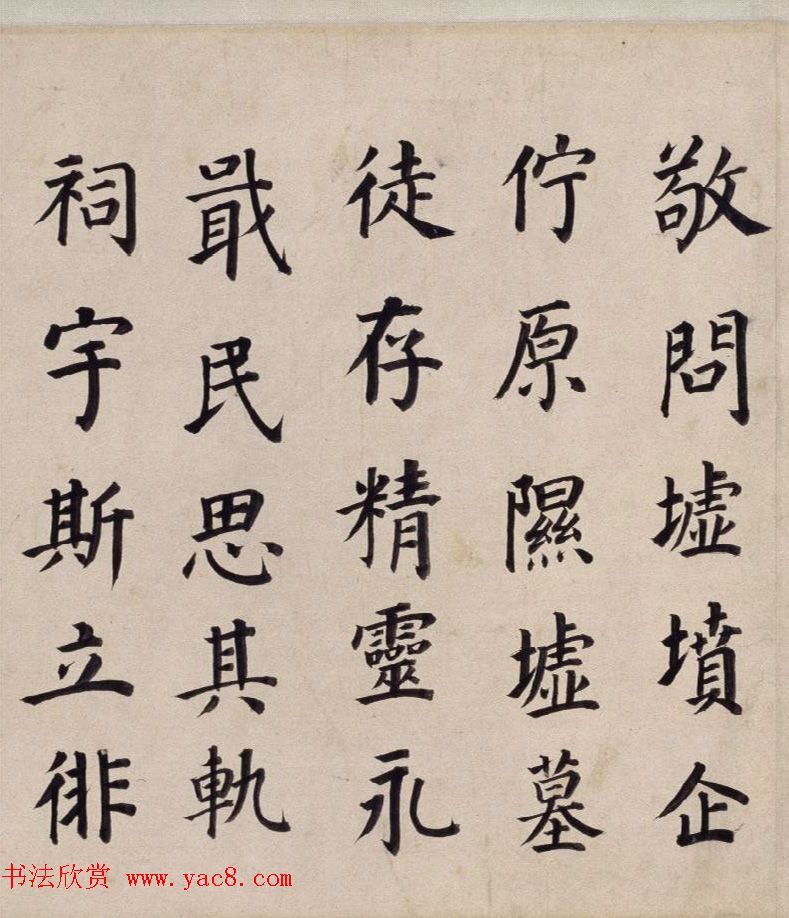 敬問墟墳企
佇原隰墟墓
徒存精靈永
戢民思其軌
祠宇斯立徘
书法欣赏 www.yac8.com